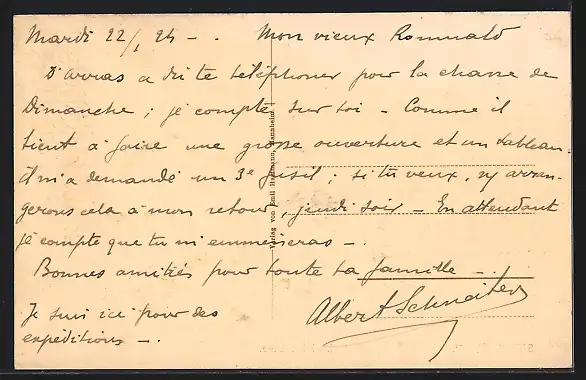 Mardi 22/1 24 - . Mon vieux Romuald
D'arras a dû te téléphoner pour la chasse de
Dimanche ; je compte sur toi - Comme il
tient à faire une grosse ouverture et un tableau
il m'a demandé un 3e fusil ; si tu veux, ns arran-
gerons cela à mon retour, jeudi soir - En attendant
je compte que tu m'emmèneras -.
Bonnes amitiés pour toute ta famille -.
Je suis ici pour des
expéditions -.
Albert Schneider
Verlag von Emil Hartmann, Mannheim